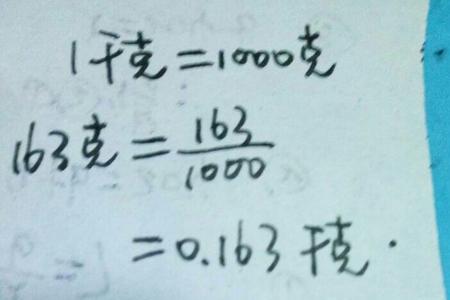 1千克=1000克
163克=163/1000
=0.163千克.